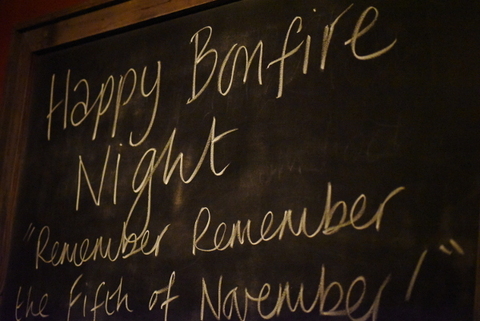 Happy Bonfire
Night
"Remember Remember
the Fifth of November!"